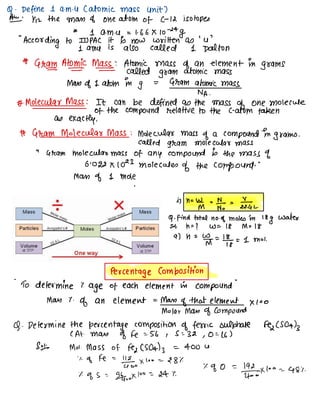 Q- Define 1 a.m.u (atomic mass unit)
Ans- 1/12 the mass of one atom of C-12 isotopes
* 1 a.m.u = 1.66 X 10⁻²⁴ g.
"According to IUPAC it is now written as 'u'
1 amu is also called 1 Dalton
* Gram Atomic Mass: Atomic mass of an element in grams
called gram atomic mass
Mass of 1 atom in g = Gram atomic mass
NA.
* Molecular Mass: It can be defined as the mass of one molecule
of the compound relative to the C-atom taken
as exactly.
* Gram Molecular Mass: Molecular mass of a compound in grams.
called gram molecular mass
" Gram molecular mass of any compound is the mass of
6.022 X 10²³ molecules of the compound."
Mass of 1 mole
Mass
Particles
Volume
of STP
Moles
Mass
Particles
Volume
at STP
One way
n = W/M = N/No = V/22.4L
Q. Find total no of moles in 18g water
n=? W=18 M=18
n = W/M = 18/18 = 1 mol.
Percentage Composition
"To determine % age of each element in compound"
Mass % of an element = Mass of that element X 100
Molar Mass of Compound
Q. Determine the percentage composition of ferric sulphate Fe₂(SO₄)₃
(At mass of Fe = 56, S = 32, O = 16)
Sol:- Mol. Mass of Fe₂(SO₄)₃ = 400 u
% of Fe = 112/400 X 100 = 28%
% of S = 96/400 X 100 = 24%
% of O = 192/400 X 100 = 48%.